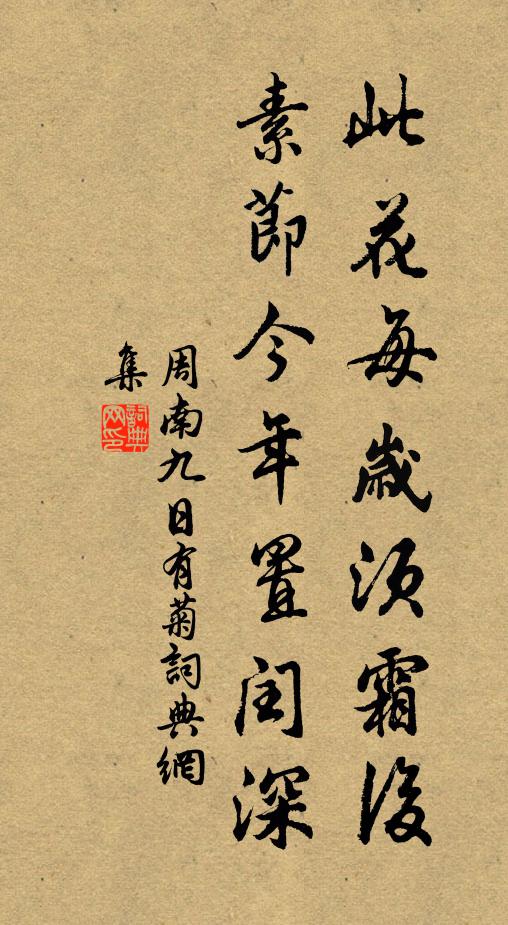 此花每歲須霜後
素節今年置閏深
周南九日有菊詞典網
集
詞典网印